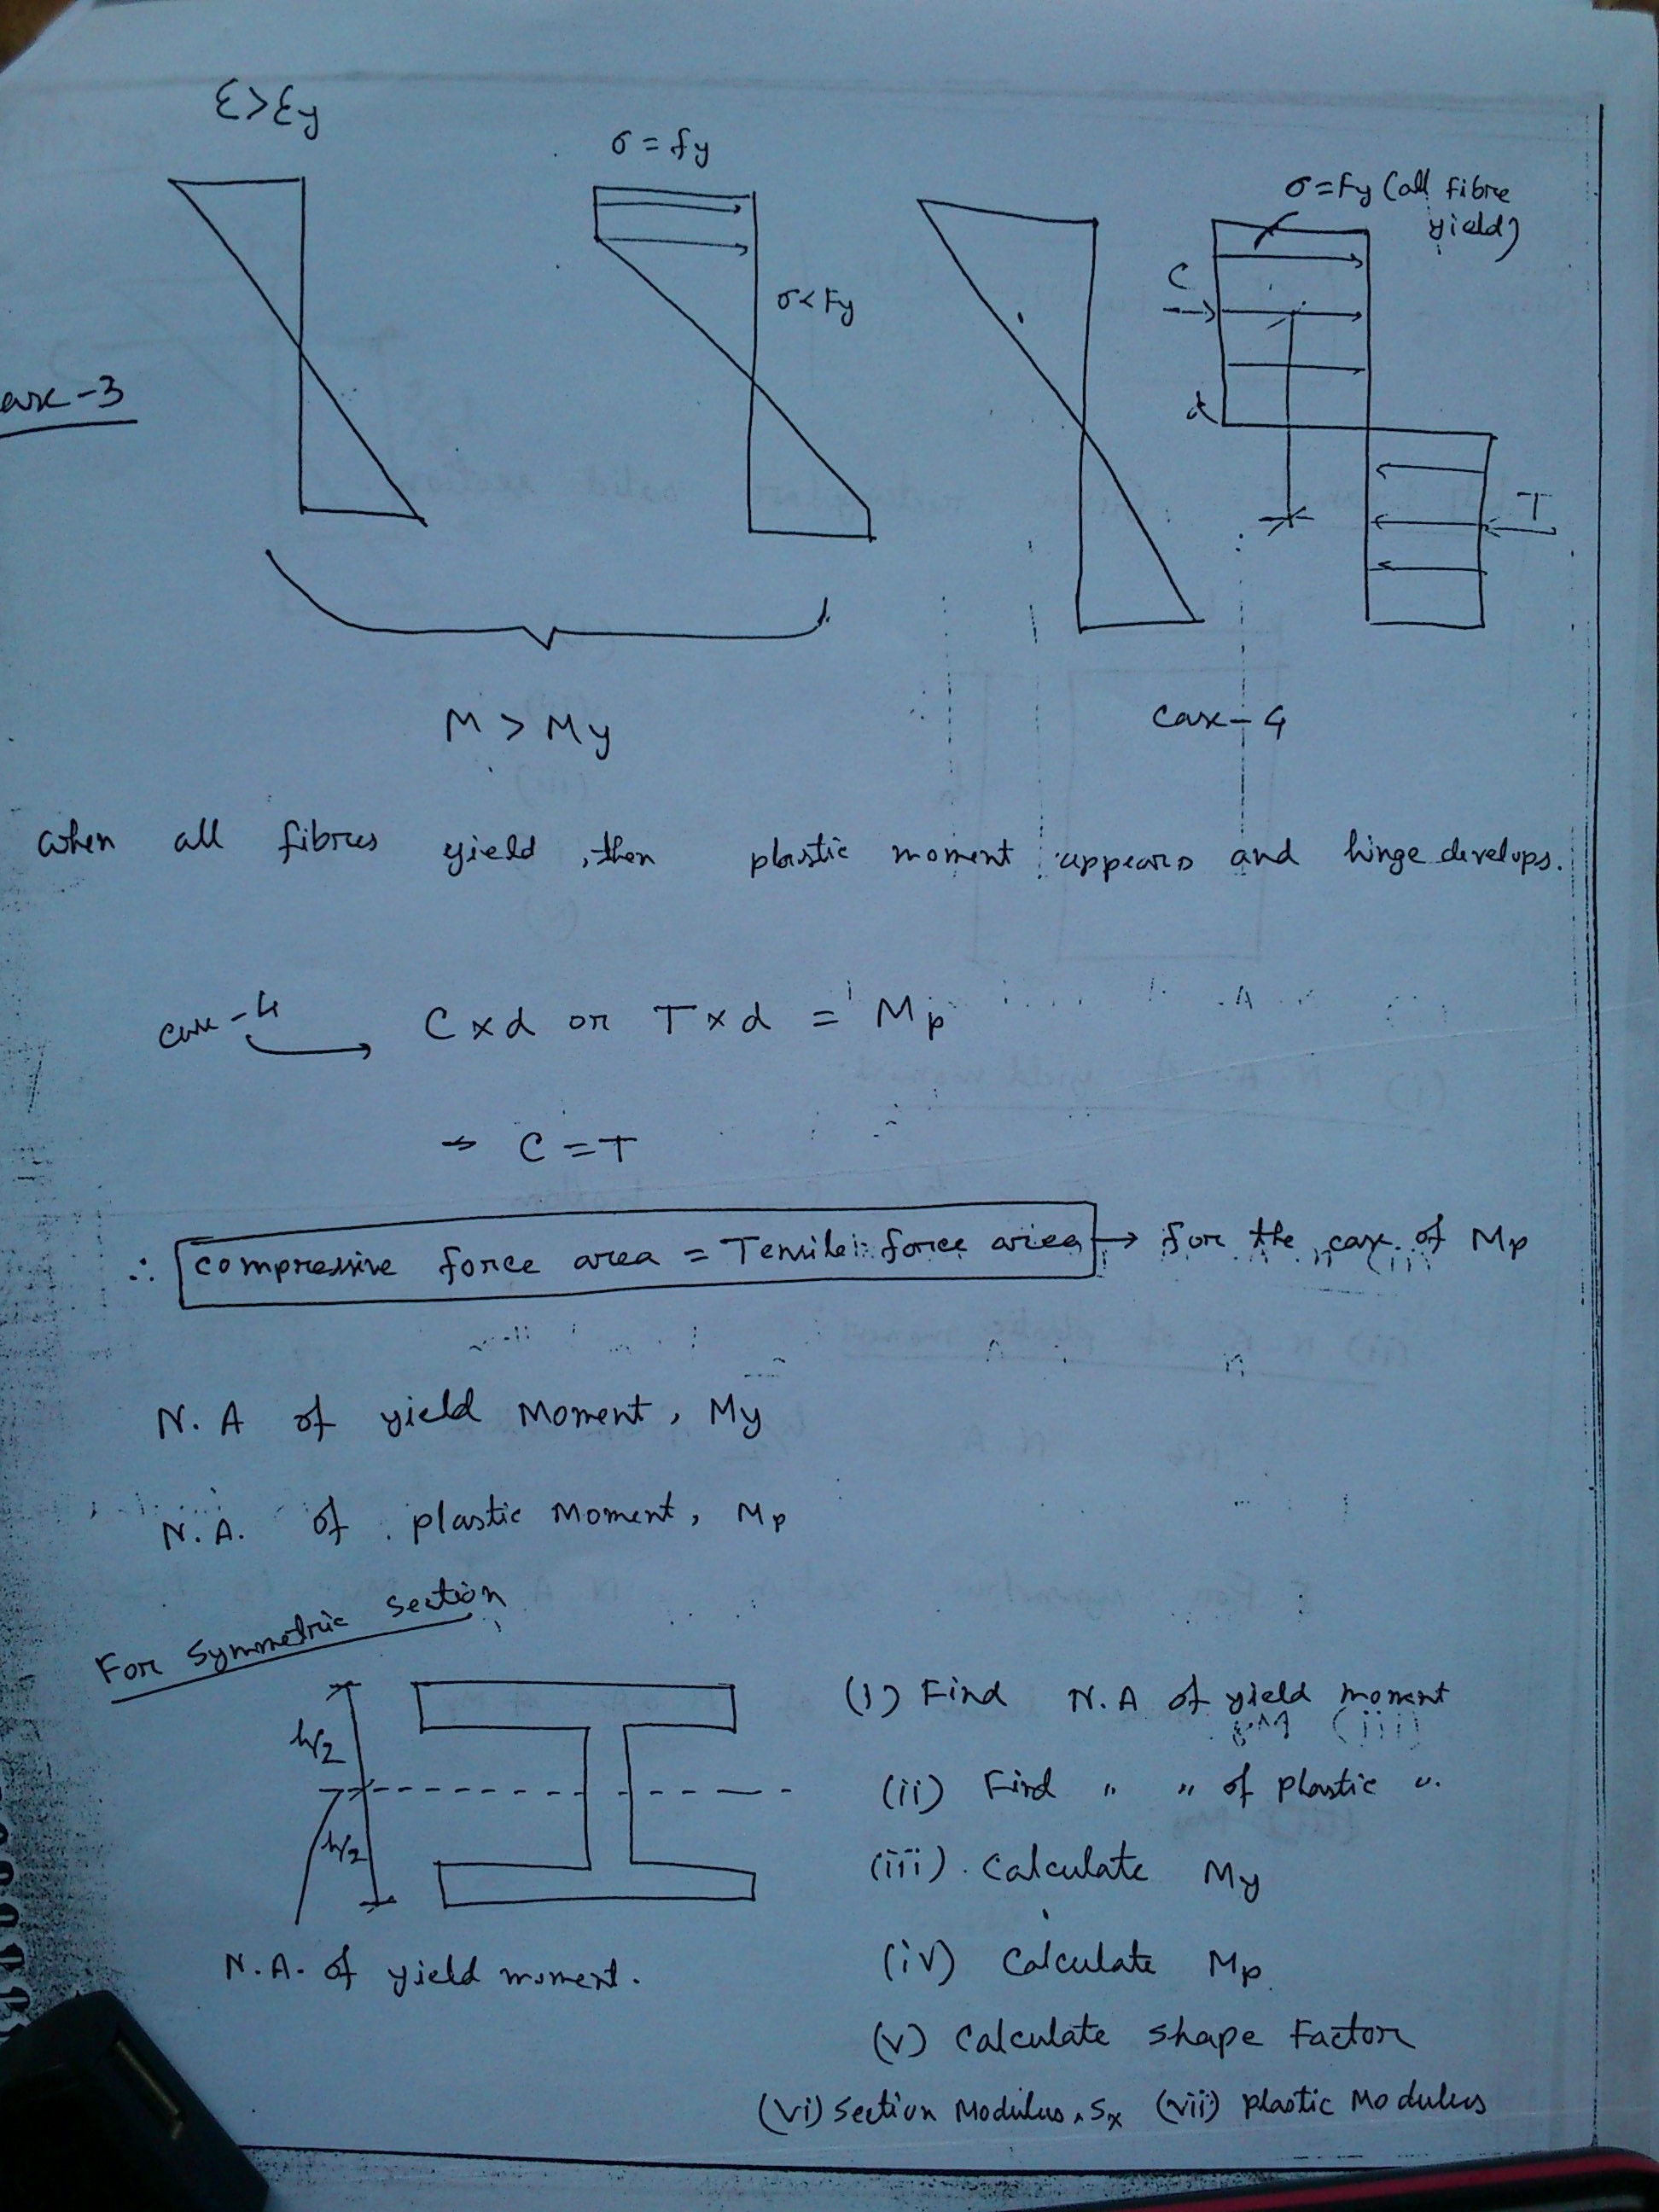 ε>εy
σ = fy
σ=Fy (all fibre
yield)
σ<Fy
C
d
T
case-3
M > My
case-4
when all fibres yield, then plastic moment appears and hinge develops.
case-4 → C x d or T x d = Mp
→ C = T
∴ compressive force area = Tensile force area → for the case of Mp
N.A of yield Moment, My
N.A. of plastic Moment, Mp
For Symmetric Section
h/2
h/2
N.A. of yield moment.
(i) Find N.A of yield moment
(ii) Find " " of plastic ".
(iii). Calculate My
(iv) Calculate Mp
(v) Calculate shape Factor
(vi) Section Modulus, Sx (vii) plastic Modulus